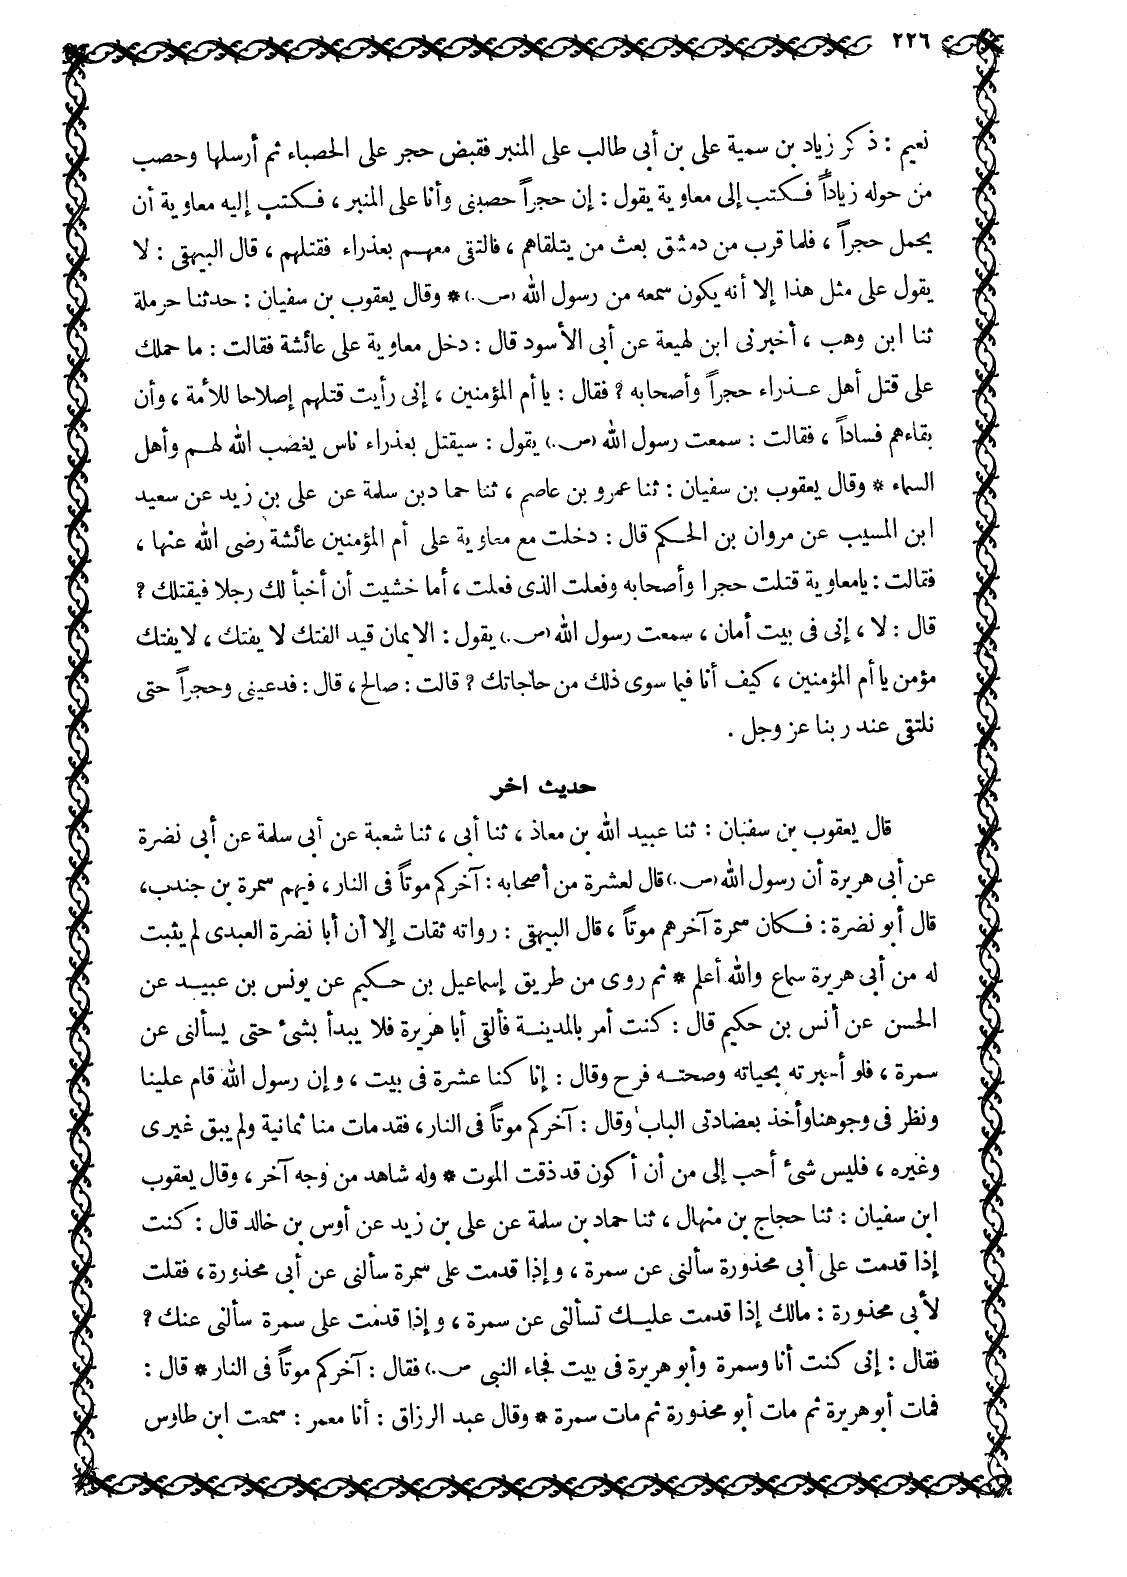 ٢٢٦
نعيم : ذكر زياد بن سمية على بن أبى طالب على المنبر فقبض حجر على الحصباء ثم أرسلها وحصب
من حوله زياداً فكتب إلى معاوية يقول : إن حجراً حصبنى وأنا على المنبر ، فكتب إليه معاوية أن
يحمل حجراً ، فلما قرب من دمشق بعث من يتلقاهم ، فالتقى معهم بعذراء فقتلهم ، قال البيهقى : لا
يقول على مثل هذا إلا أنه يكون سمعه من رسول الله (ص.) * وقال يعقوب بن سفيان : حدثنا حرملة
ثنا ابن وهب ، أخبرنى ابن لهيعة عن أبى الأسود قال : دخل معاوية على عائشة فقالت : ما حملك
على قتل أهل عذراء حجراً وأصحابه ؟ فقال : يا أم المؤمنين ، إنى رأيت قتلهم إصلاحا للأمة ، وأن
بقاءهم فساداً ، فقالت : سمعت رسول الله (ص.) يقول : سيقتل بعذراء ناس يغضب الله لهم وأهل
السماء * وقال يعقوب بن سفيان : ثنا عمرو بن عاصم ، ثنا حما دبن سلمة عن على بن زيد عن سعيد
ابن المسيب عن مروان بن الحكم قال : دخلت مع معاوية على أم المؤمنين عائشة رضى الله عنها ،
فقالت : يامعاوية قتلت حجرا وأصحابه وفعلت الذى فعلت ، أما خشيت أن أخبأ لك رجلا فيقتلك ؟
قال : لا ، إنى فى بيت أمان ، سمعت رسول الله (ص.) يقول : الايمان قيد الفتك لا يفتك ، لا يفتك
مؤمن يا أم المؤمنين ، كيف أنا فيما سوى ذلك من حاجاتك ؟ قالت : صالح ، قال : فدعينى وحجراً حتى
نلتقى عند ربنا عز وجل .
حديث اخر
قال يعقوب بن سفيان : ثنا عبيد الله بن معاذ ، ثنا أبى ، ثنا شعبة عن أبى سلمة عن أبى نضرة
عن أبى هريرة أن رسول الله (ص.) قال لعشرة من أصحابه : آخركم موتاً فى النار ، فيهم سمرة بن جندب ،
قال أبو نضرة : فكان سمرة آخرهم موتاً ، قال البيهقى : رواته ثقات إلا أن أبا نضرة العبدى لم يثبت
له من أبى هريرة سماع والله أعلم * ثم روى من طريق إسماعيل بن حكيم عن يونس بن عبيد عن
الحسن عن أنس بن حكيم قال : كنت أمر بالمدينة فألقى أبا هريرة فلا يبدأ بشئ حتى يسألنى عن
سمرة ، فلو أخبرته بحياته وصحته فرح وقال : إنا كنا عشرة فى بيت ، وإن رسول الله قام علينا
ونظر فى وجوهنا وأخذ بعضادتى الباب وقال : آخركم موتاً فى النار ، فقد مات منا ثمانية ولم يبق غيرى
وغيره ، فليس شئ أحب إلى من أن أكون قد ذقت الموت * وله شاهد من وجه آخر ، وقال يعقوب
ابن سفيان : ثنا حجاج بن منهال ، ثنا حماد بن سلمة عن على بن زيد عن أوس بن خالد قال : كنت
إذا قدمت على أبى محذورة سألنى عن سمرة ، وإذا قدمت على سمرة سألنى عن أبى محذورة ، فقلت
لأبى محذورة : مالك إذا قدمت عليك تسألنى عن سمرة ، وإذا قدمت على سمرة سألنى عنك ؟
فقال : إنى كنت أنا وسمرة وأبو هريرة فى بيت فجاء النبى ص.) فقال : آخركم موتاً فى النار * قال :
فمات أبو هريرة ثم مات أبو محذورة ثم مات سمرة * وقال عبد الرزاق : أنا معمر : سمعت ابن طاوس